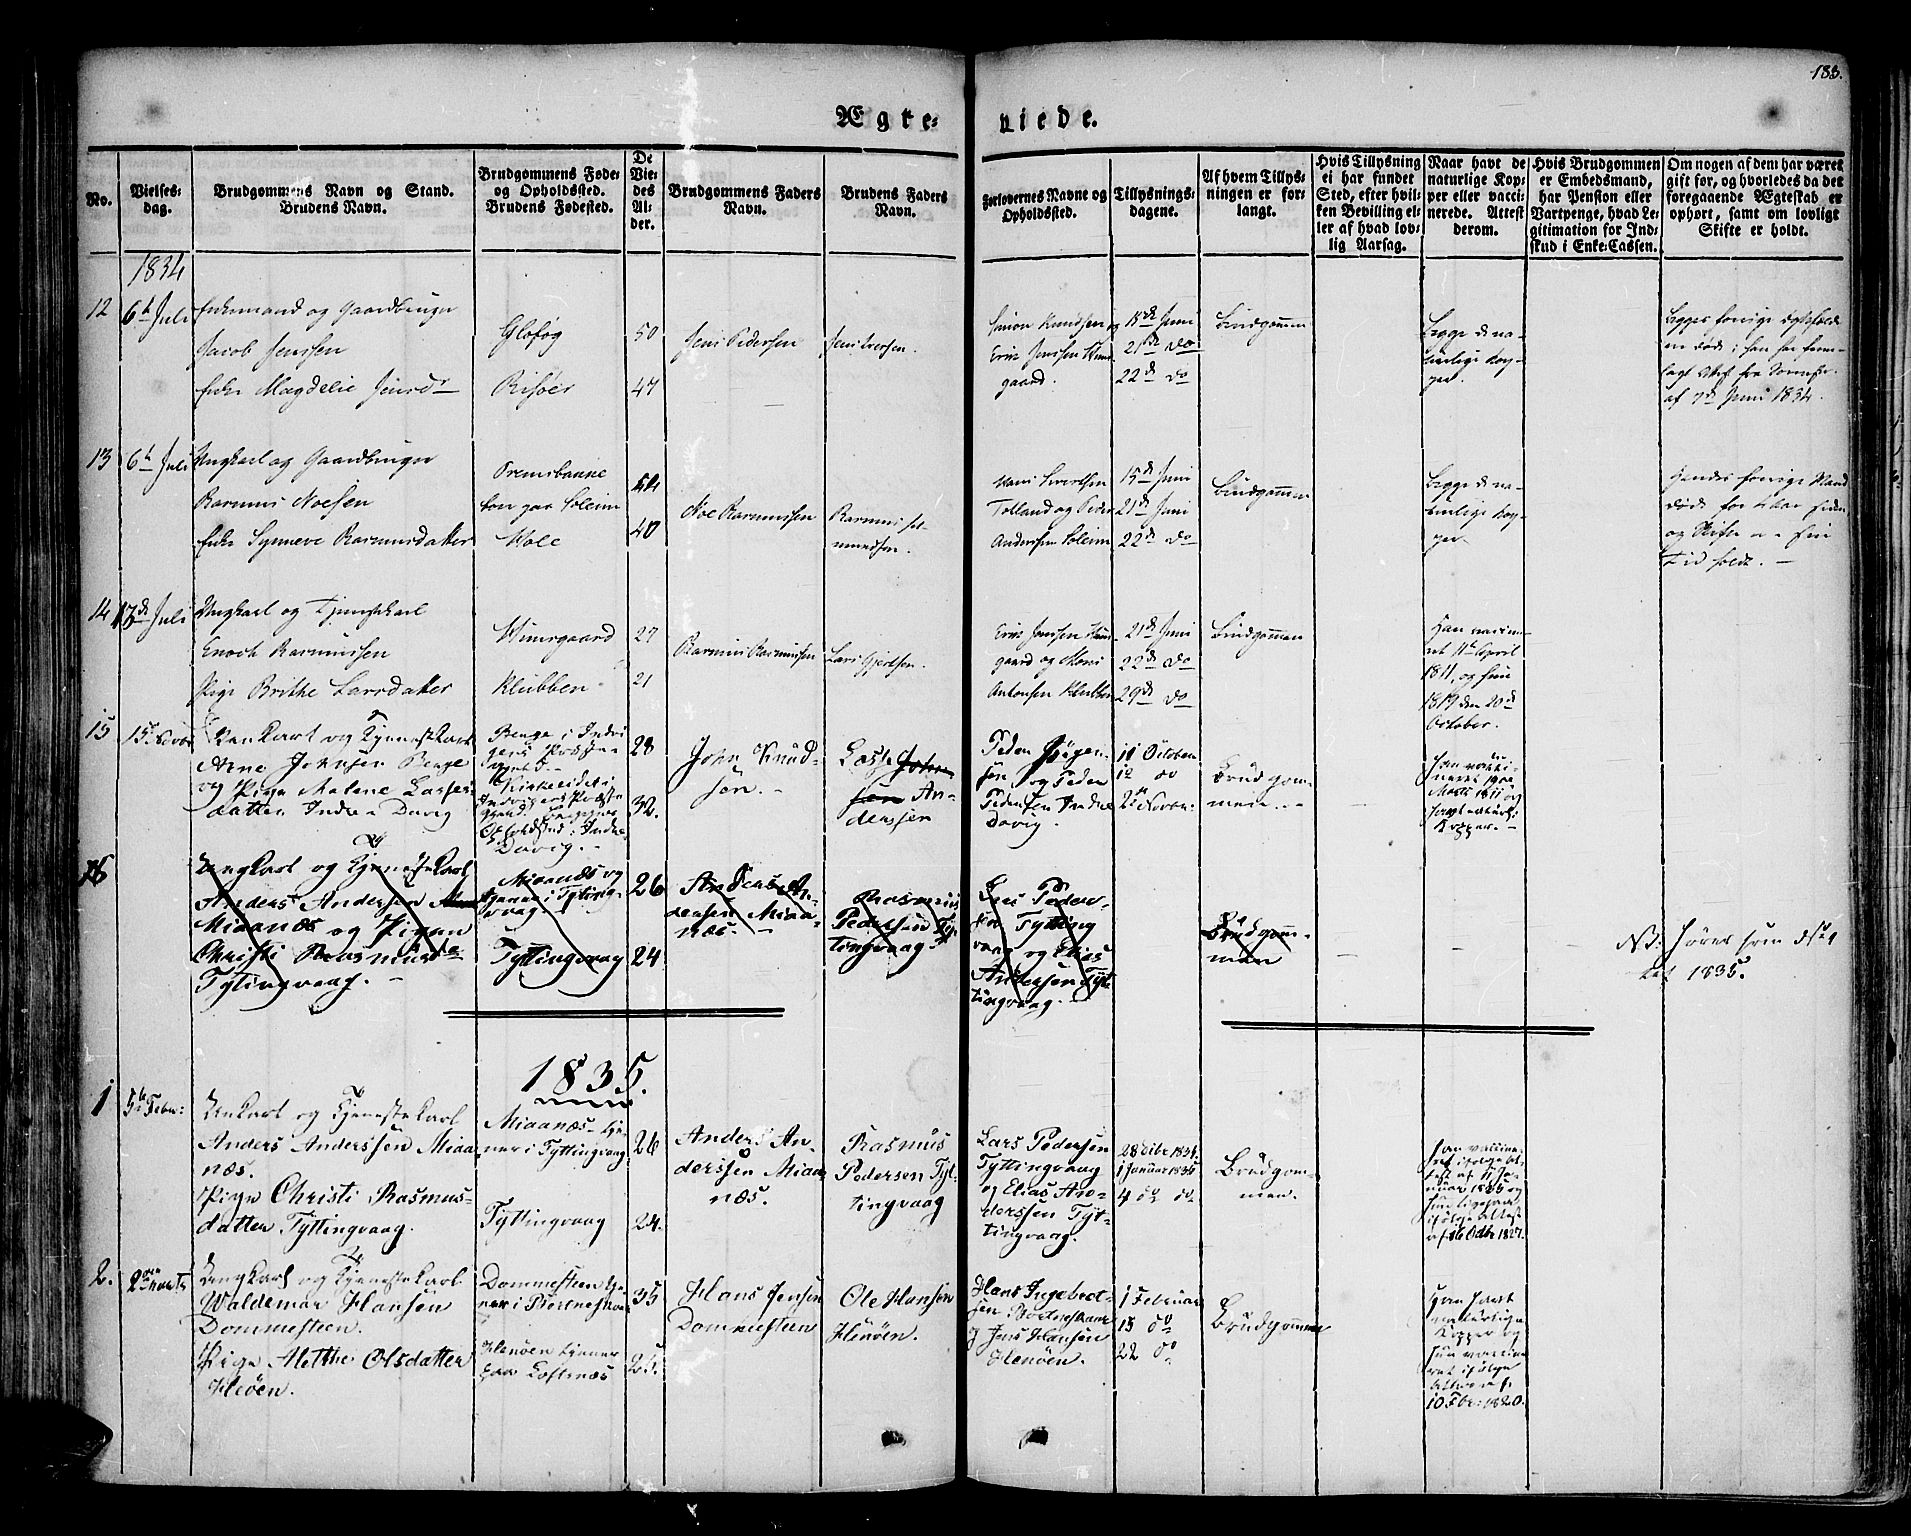 183.
Ægte- viede.
No.
Vielses-
dag.
Brudgommens Navn og Stand.
Brudens Navn.
Brudgommens Føde-
og Opholdssted.
Brudens Fødested.
De
Vie-
des
Al-
der.
Brudgommens Faders
Navn.
Brudens Faders
Navn.
Forlovernes Navne og
Opholdssted.
Tillysnings-
dagene.
Af hvem Tillys-
ningen er for-
langt.
Hvis Tillysning
ei har fundet
Sted, efter hvil-
ken Bevilling el-
ler af hvad lov-
lig Aarsag.
Naar havt de
naturlige Kop-
per eller vacci-
nerede. Attest
derom.
Hvis Brudgommen
er Embedsmand,
har Pension eller
Vartpenge, hvad Le-
gitimation for Ind-
skud i Enke-Cassen.
Om nogen af dem har været
gift før, og hvorledes da det
foregaaende Ægtestad er
ophørt, samt om lovligt
Skifte er holdt.
1834
12 6te Juli
Enkemand og Gaardbruger
Jacob Jenssen
Enke Magdelie Jensdr
Risøer
50
47
Jens Pedersen
Jens Iversen.
Simon Knudsen og
Eric Jenssen Huns
gaard.
15de Juni
21de do
22de do
Brudgommen
begge de na-
turlige Kop-
per.
af 7de Juni 1834.
13 6te Juli
Ungkarl og Gaardbruger
Rasmus Noesen
Enke Synneve Rasmusdatter
Wole
40
Noe Rasmussen
Rasmus
Hans Sivertsen
Tolland og Peder
Andersen Soleim
15de Juni
21de Juni
22de do
Brudgommen
begge de na-
turlige Kop-
per.
Hendes forrige Mand
døde for 4 Aar siden
og Skifte i sin
Tid holdt.
14 13de Juli
Ungkarl og Tjenestekarl
Enoch Rasmussen
Pige Brithe Larsdatter
Hunsgaard
Klubben
27
21
Rasmus Rasmussen
Lars Gjertsen.
Eric Jenssen Huns-
gaard og Mons
Antonsen Klubben
21de Juni
22de do
29de do
Brudgommen
Han vaccine-
ret 11te April
1811, og hun
1819 den 20de
October.
15 15 Novbr
Ungkarl og Tjenestekarl
Arne Johnsen Berge
og Pige Malene Larses
datter Indre Davig
Berge i Indvi
gens Præste
gjeld
Opholdsted i Indre
Davig.
28
32.
John Knud-
sen.
Lasse John
sen An-
derssen
Peder Jøgen-
sen og Peder
Pedersen Indre
Davig.
11 October
12 do
2de Novbr:
Brudgom-
men.
Han vacci-
neret 19de
Marti 1811 og
hun havt naturl:
Kopper.
16
Ungkarl og Tjenestekarl
Anders Andersen
Miaanæs og Pigen
Christi Rasmusd
Tytingvaag.
Miaanæs og
tjener i Tytting-
vaag
Tyttingvaag
26
24
Anders An-
dersen Miaa-
næs.
Rasmus
Pedersen Tyt-
tingvaag
Lars Peder-
sen Tytting
vaag
og Elias
Andersen Tytt
tingvaag.
Brudgom-
men
NB: føres som No 1
1835.
1835.
1 5te Febr:
Ungkarl og Tjenestekarl
Anders Anderssen Miaa
næs.
Pige Christi Rasmus-
datter Tyttingvaag.
Miaanæs tje-
ner i Tyttingvaag
Tyttingvaag
26
24.
Anders An-
derssen Miaa
næs.
Rasmus
Pedersen Tyt-
tingvaag
Lars Pedersen
Tyttingvaag
og Elias An-
derssen Tyt-
tingvaag.
28 Dibr 1834.
1 Januar 1835
4 do do
Brudgom-
men.
Han vaccine
ret ifølge at-
test af 11 Ja-
nuar 1835 og
hun ligesaa
ifølge attest
af 16 Octbr 1827.
2. 2den Marts
Ungkarl og Tjenestekarl
Waldemar Hansen
Dommesteen.
Pige Mette Olsdatter
Henøen.
Dommesteen tje-
ner i Bortneskar
Henøen tjener
paa Loftenæs
35
25.
Hans Jensen
Dommesteen
Ole Hansen
Henøen.
Hans Ingebret-
sen Bortneskare
og Jens Hansen
Henøen.
1 Februar
15 do
22 do
Brudgommen
Han havt
naturlige
Kopper og
hun vaccine
ret ifølge
attest af
10 Fbr: 1820.